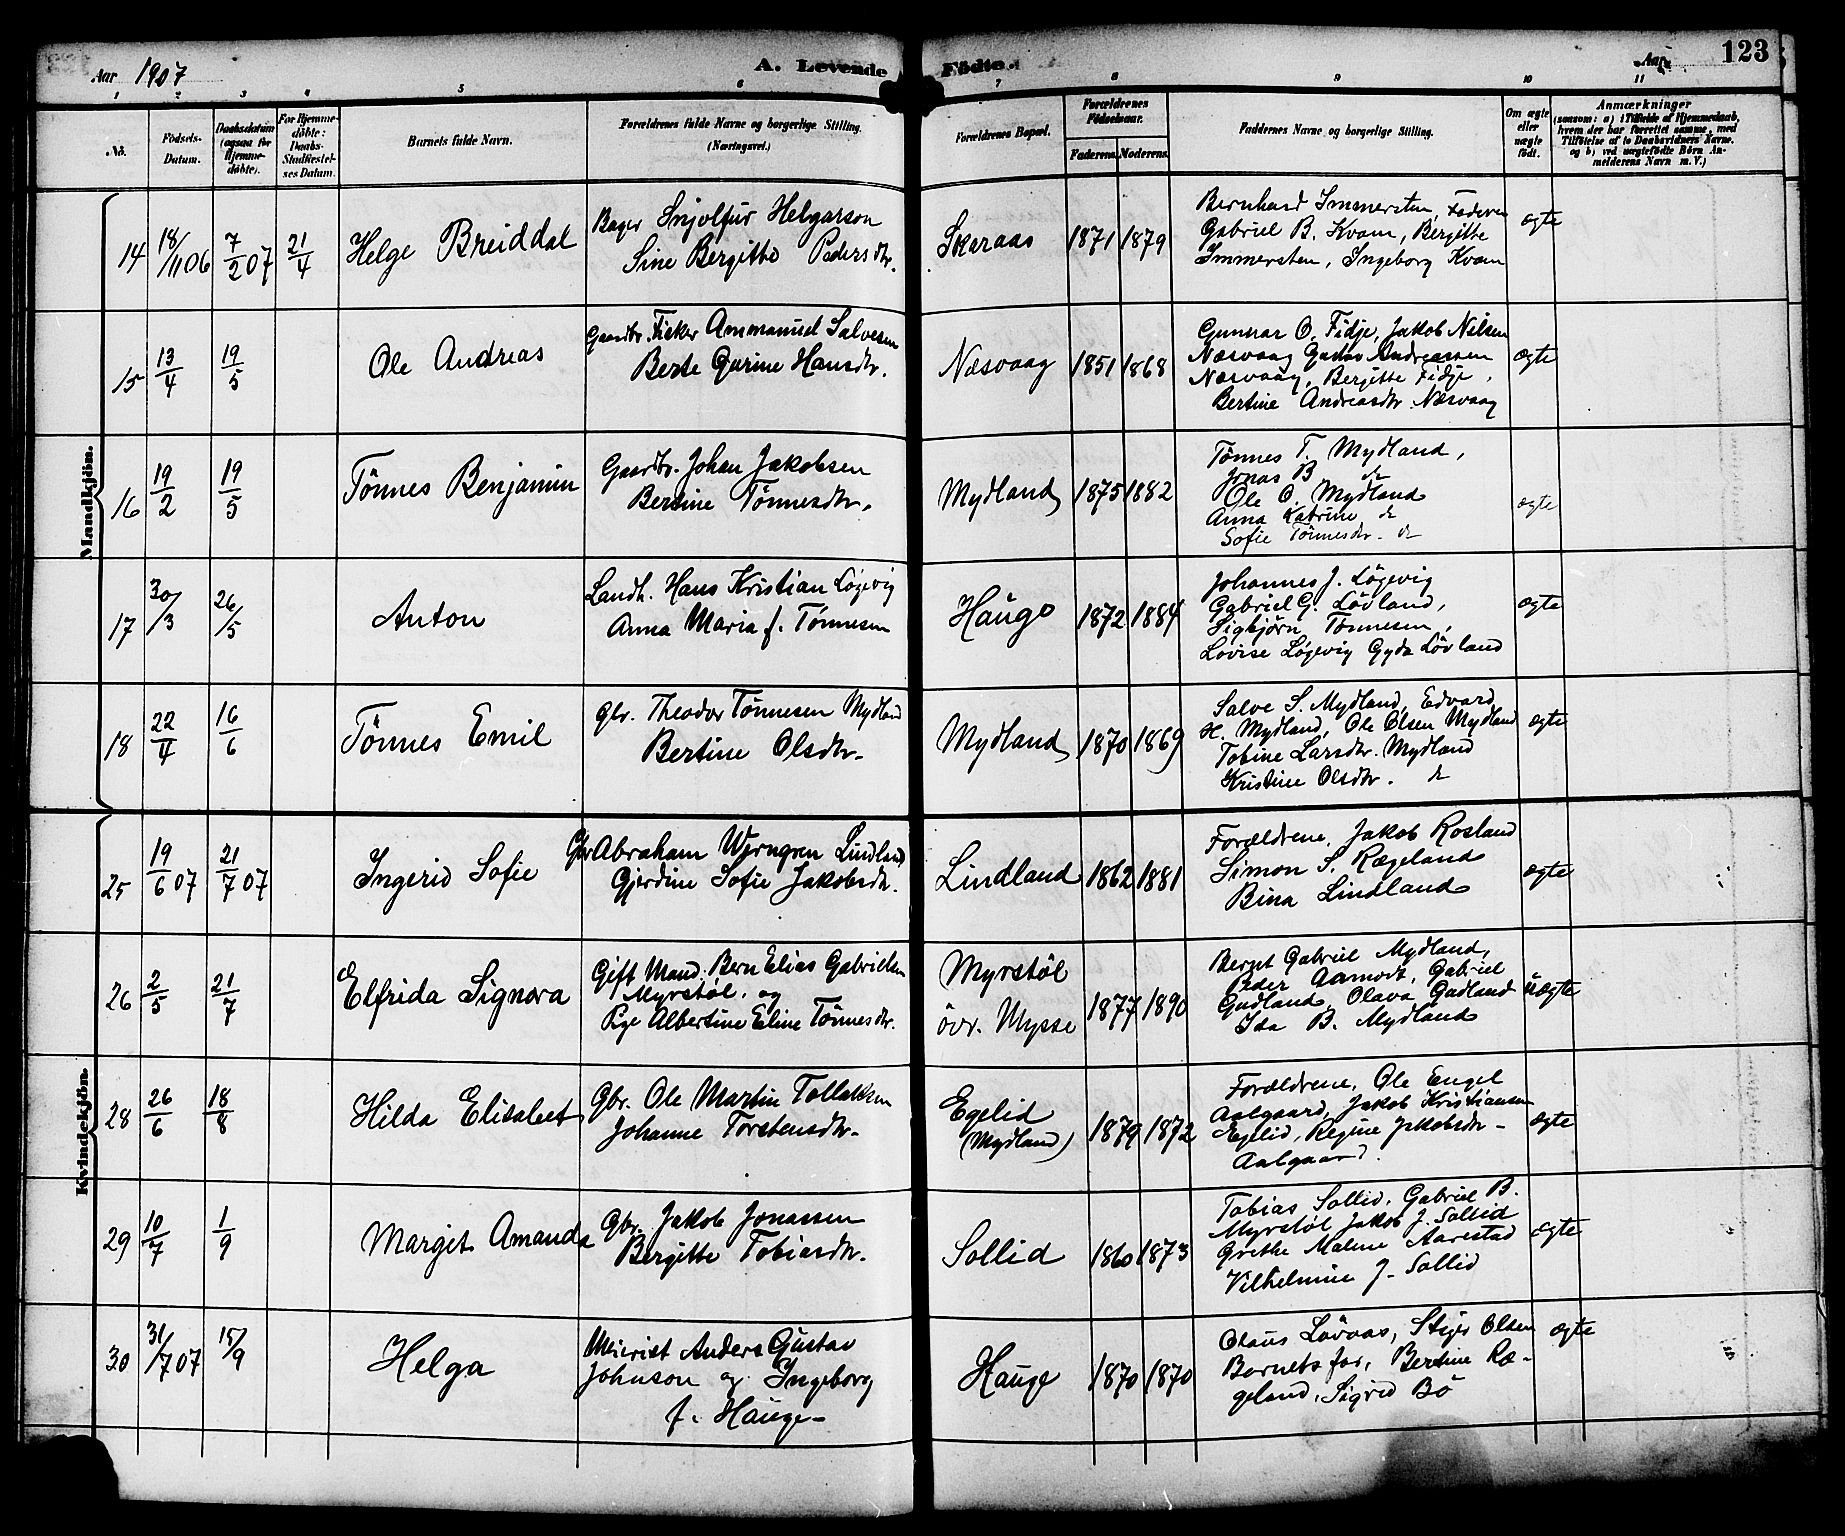 Aar 1907
A. Levende Fødte.
Aar
123
1 2 3 4 5 6 7 8 9 10 11
No.
Fødsels-
Datum.
Daabsdatum
(ogsaa for
Hjemme-
døbte).
For Hjemme-
døbte:
Daabs-
Stadfæstel-
ses Datum.
Barnets fulde Navn.
Forældrenes fulde Navne og borgerlige Stilling.
(Næringsvei.)
Forældrenes Bopæl.
Forældrenes
Fødselsaar.
Faderens. Moderens.
Faddernes Navne og borgerlige Stilling.
Om ægte
eller
uægte
født.
Anmærkninger
(saasom: a) i Tilfælde af Hjemmedaab,
hvem der har forrettet samme, med
Tilføielse af to Daabsvidners Navne.
og b) ved uægtefødte Børn An-
melderens Navn m. V.)
Mandkjøn.
14 18/11 06 7/2 07 21/4 Helge Breiddal
Bager Snjolfur Helgarson
Sine Bergitte Pedersdtr.
Skaraas 1871 1879
Bernhard Immersten, Faderen
Gabriel B. Kvam, Bergitte
Immersten, Ingeborg Kvam
ægte
15 13/4 19/5 Ole Andreas
Gaardbr. Fisker Ammanuel Salvesen
Berte Gurine Hansdtr.
Næsvaag 1851 1868
Gunnar O. Fidje, Jakob Nilsen
Næsvaag Gustav Andreassen
Næsvaag, Bergitte Fidje,
Bertine Andreasdtr. Næsvaag
ægte
16 19/2 19/5 Tönnes Benjamin
Gaardbr. Johan Jakobsen
Bertine Tönnesdtr.
Mydland 1875 1882
Tönnes T. Mydland,
Jonas B do
Ole O. Mydland
Anna Katrine do
Sofie Tönnesdtr. do
ægte
17 30/3 26/5 Anton
Landh. Hans Kristian Lögevig
Anna Maria f. Tönnesen
Hauge 1872 1884
Johannes J. Lögevig
Gabriel G. Lövland,
Sigbjörn Tönnesen,
Lovise Lögevig Gyda Lövland
ægte
18 22/4 16/6 Tönnes Emil
Gbr. Theodor Tönnesen Mydland
Bertine Olsdtr.
Mydland 1870 1869
Salve S. Mydland, Edvard
H. Mydland, Ole Olsen Mydland
Tobine Larsdtr. Mydland
Kristine Olsdtr. do
ægte
Kvindekjøn.
25 19/6 07 21/7 07 Ingerid Sofie
Gbr Abraham Werngren Lindland
Gjerdine Sofie Jakobsdtr.
Lindland 1862 1881
Forældrene, Jakob Rosland
Simon S. Rægeland
Bina Lindland
ægte
26 2/5 21/7 Elfrida Signora
Gift Mand. Bern Elias Gabrielsen
Myrstöl, og
Pige Albertine Eline Tönnesdtr.
Myrstöl
övr. Mysse
1877 1890
Bernt Gabriel Mydland,
Peder Aamodt, Gabriel
Gudland, Olava Gudland
Ida B. Mydland
uægte
28 26/6 18/8 Hilda Elisabet
Gbr. Ole Martin Tollaksen
Johanne Torstensdtr.
Egelid
(Mydland)
1879 1872
Forældrene, Ole Engel
Aalgaard, Jakob Kristiansen
Egelid, Regine Jakobsdtr.
Aalgaard.
ægte
29 10/7 1/9 Margit Amanda
Gbr. Jakob Jonassen
Bergitte Tobiasdtr.
Sollid 1860 1873
Tobias Sollid, Gabriel B.
Myrstöl Jakob J. Sollid
Grethe Maline Aarestad
Vilhelmine J. Sollid
ægte
30 31/7 07 15/9 Helga
Meierist Anders Gustav
Johnson og Ingeborg
f. Hauge
Hauge 1870 1870
Olaus Lövaas, Olsen
Barnets far, Bertine Ræ-
geland, Sigrid Bö
ægte